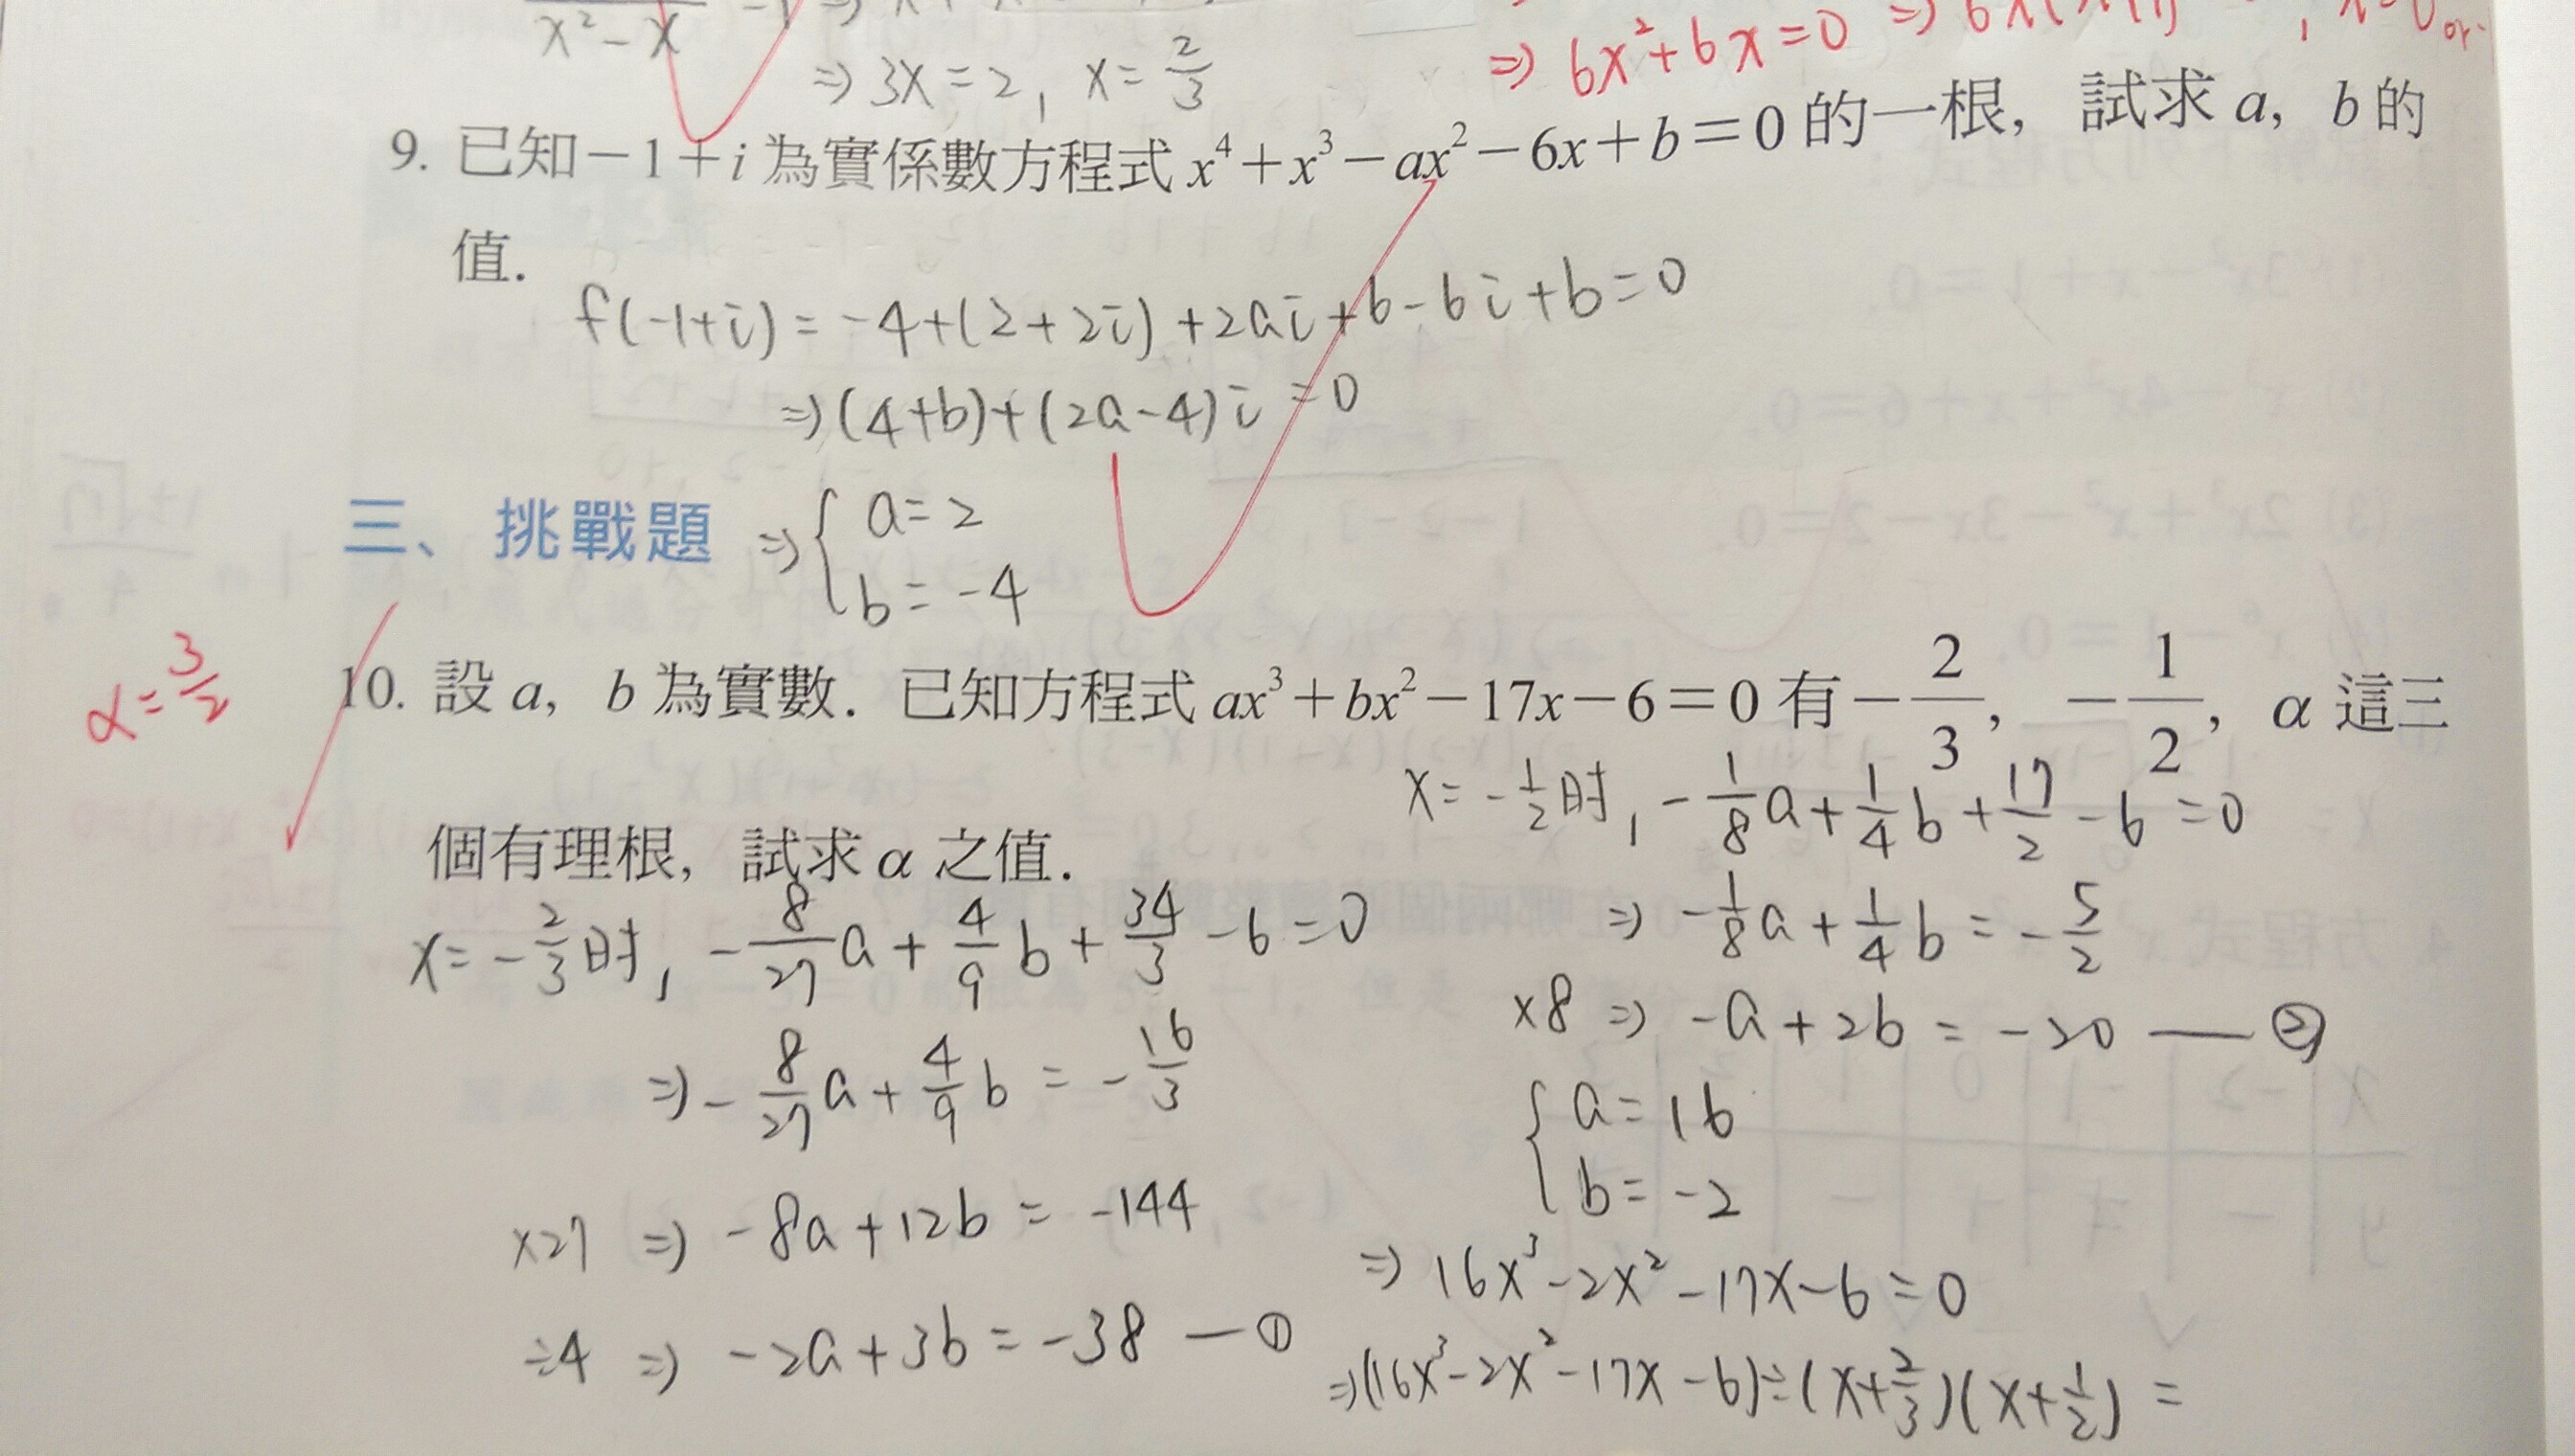 x²-x
⇒ 3x=2, x=2/3
⇒ 6x²+6x=0 ⇒ 6x
9. 已知-1+i為實係數方程式x⁴+x³-ax²-6x+b=0的一根，試求a，b的
值.
f(-1+i)=-4+(2+2i)+2ai+6-6i+b=0
⇒(4+b)+(2a-4)i=0
⇒{a=2
b=-4
三、挑戰題
α=3/2
10. 設a，b為實數. 已知方程式ax³+bx²-17x-6=0有-2/3，-1/2，α這三
個有理根，試求α之值.
x=-2/3时, -8/27a+4/9b+34/3-6=0
⇒-8/27a+4/9b=-16/3
×27 ⇒ -8a+12b=-144
÷4 ⇒ -2a+3b=-38 —①
x=-1/2时, -1/8a+1/4b+17/2-6=0
⇒ -1/8a+1/4b=-5/2
×8 ⇒ -a+2b=-20 —②
{a=16
b=-2
⇒ 16x³-2x²-17x-6=0
⇒(16x³-2x²-17x-6)÷(x+2/3)(x+1/2)=